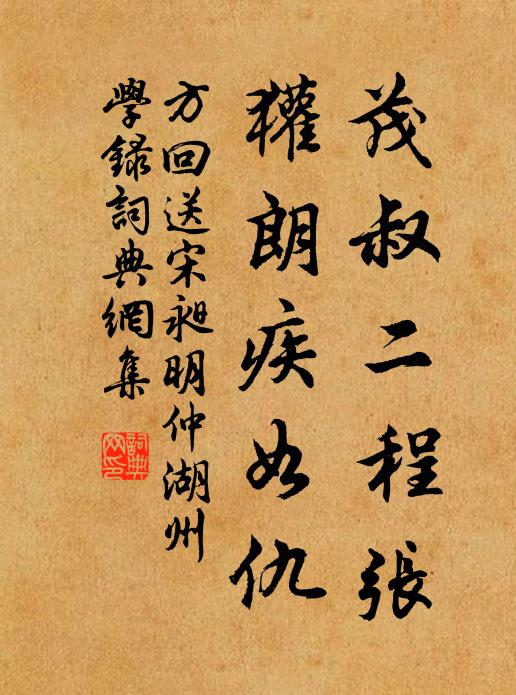 茂叔二程張
獾朗疾如仇
方回送宋昶明仲湖州
學錄詞典網集
詞典網印